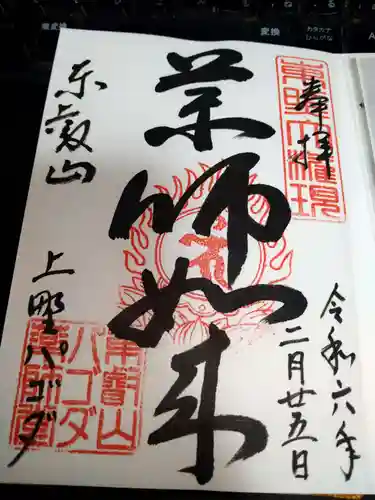 無変換
変換
カタカナ
ひらがな
奉拝
令和六年
二月廿五日
薬師如来
東叡山
上野パゴダ
東叡山
パゴダ
薬師